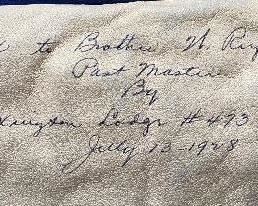 to Brother W. R
Past Master
By
xington Lodge #493
July 13-1928